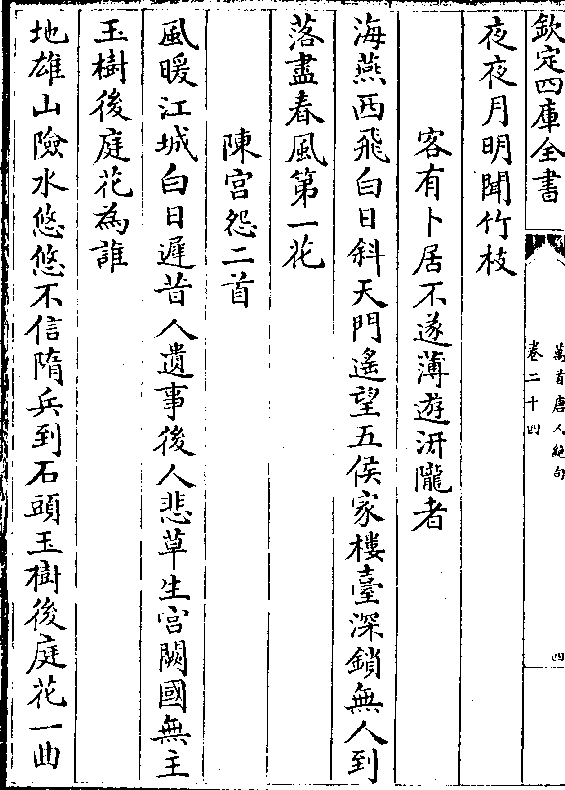 欽定四庫全書
萬首唐人絶句
卷二十四
四
夜夜月明聞竹枝
客有卜居不遂薄遊汧隴者
海燕西飛白日斜天門遙望五侯家樓臺深鎖無人到
落盡春風第一花
陳宫怨二首
風暖江城白日遲昔人遺事後人悲草生宫闕國無主
玉樹後庭花為誰
地雄山險水悠悠不信隋兵到石頭玉樹後庭花一曲